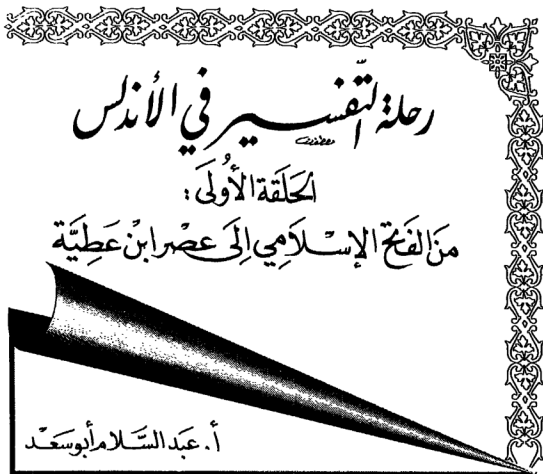 رحلة التّفسير في الأندلس
الحَلَقة الأُولَى:
مِنَ الفَتْح الإسْلَامِي إلَى عَصْر ابْن عَطِيَّة
أ. عبد السَّلام أبو سَعْد